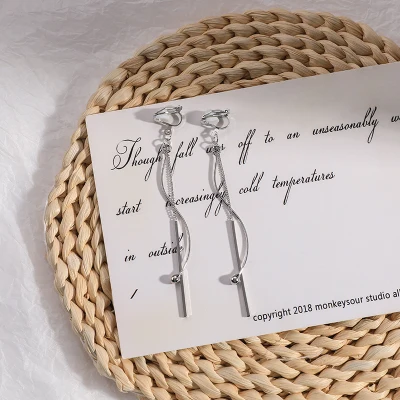 Though fall was off to an unseasonably w
start increasingly cold temperatures
in outside
/
copyright 2018 monkeysour studio all